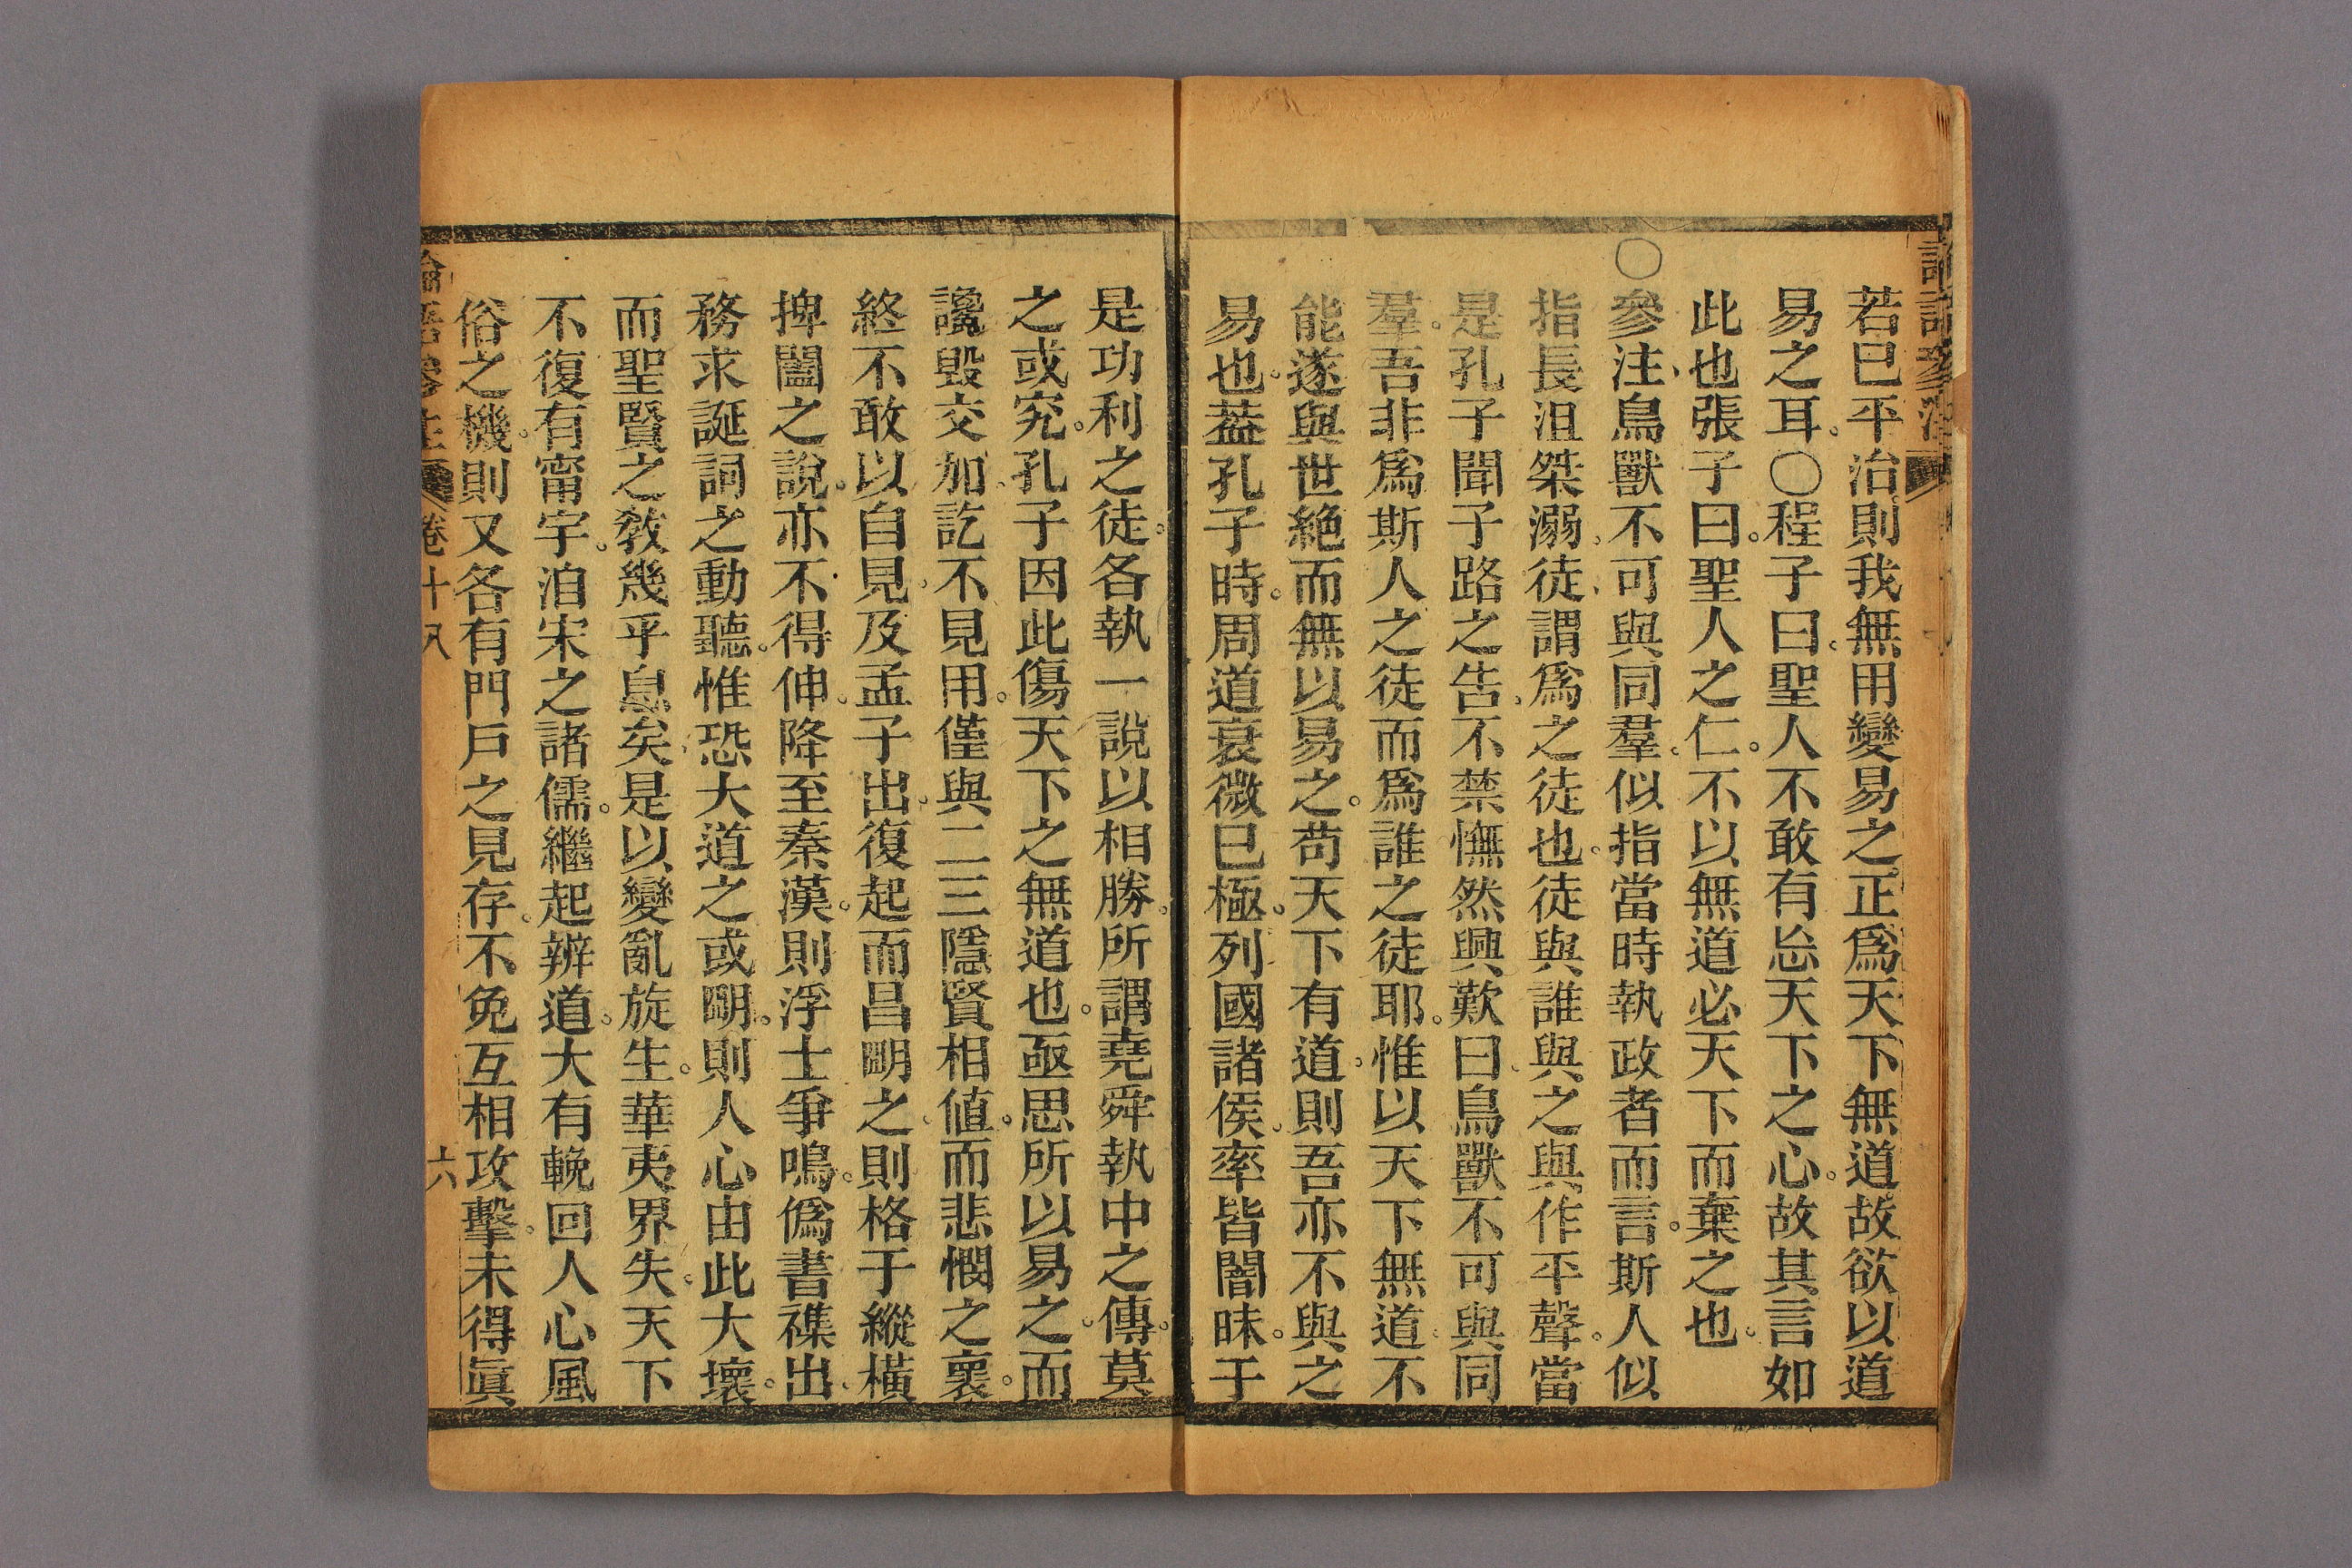 若已平治則我無用變易之正爲天下無道故欲以道
易之耳○程子曰聖人不敢有忘天下之心故其言如
此也張子曰聖人之仁不以無道必天下而棄之也
○參注鳥獸不可與同羣似指當時執政者而言斯人似
指長沮桀溺徒謂爲之徒也徒與誰與之與作平聲當
是孔子聞子路之告不禁憮然興歎曰鳥獸不可與同
羣吾非爲斯人之徒而爲誰之徒耶惟以天下無道不
能遂與世絶而無以易之苟天下有道則吾亦不與之
易也葢孔子時周道衰微已極列國諸侯率皆闇昧于
是功利之徒各執一說以相勝所謂堯舜執中之傳莫
之或究孔子因此傷天下之無道也亟思所以易之而
讒毀交加訖不見用僅與二三隱賢相値而悲憫之裏
終不敢以自見及孟子出復起而昌明之則格于縱橫
捭闔之說亦不得伸降至秦漢則浮士爭鳴僞書襍出
務求誕詞之動聽惟恐大道之或明則人心由此大壞
而聖賢之敎幾乎息矣是以變亂旋生華夷界失天下
不復有甯宇洎宋之諸儒繼起辨道大有輓回人心風
俗之機則又各有門戶之見存不免互相攻擊未得眞
論語參注 卷十八 六